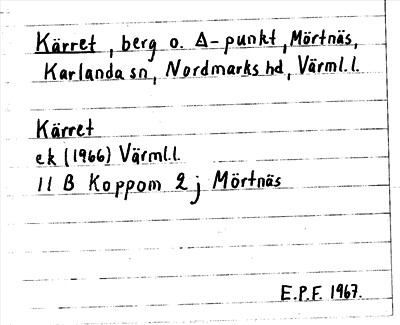 Kärret, berg o. Δ-punkt, Mörtnäs,
Karlanda sn, Nordmarks hd, Värml.l.
Kärret
ek (1966) Värml.l.
11 B Koppom 2 j Mörtnäs
E.P.F. 1967.